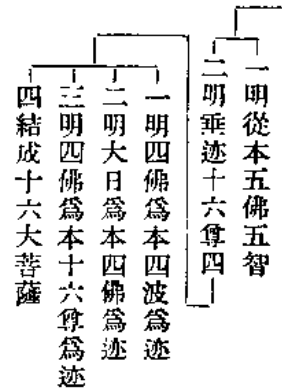 一明從本五佛五智
二明垂迹十六尊四
一明四佛爲本四波爲迹
二明大日爲本四佛爲迹
三明四佛爲本十六尊爲迹
四結成十六大菩薩